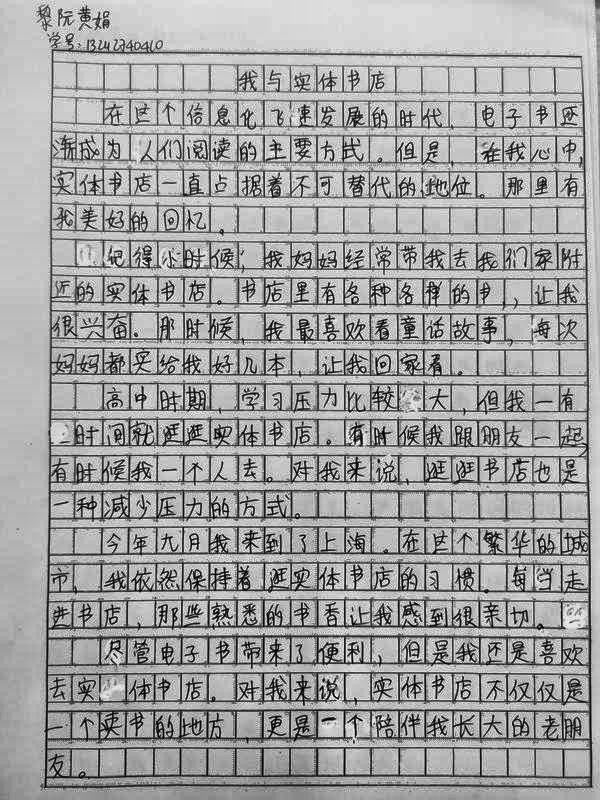 黎阮黄娟
学号:13242740410
我与实体书店
在这个信息化飞速发展的时代,电子书还
渐成为人们阅读的主要方式。但是,在我心中,
实体书店一直占据着不可替代的地位。那里有
我美好的回忆。
记得小时候,我妈妈经常带我去我们家附
近的实体书店。书店里有各种各样的书,让我
很兴奋。那时候,我最喜欢看童话故事,每次
妈妈都买给我好几本,让我回家看。
高中时期,学习压力比较大,但我一有
时间就逛逛实体书店。有时候我跟朋友一起,
有时候我一个人去。对我来说,逛逛书店也是
一种减少压力的方式。
今年九月我来到了上海。在这个繁华的城
市,我依然保持着逛实体书店的习惯。每当走
进书店,那些熟悉的书香让我感到很亲切。
尽管电子书带来了便利,但是我还是喜欢
去实体书店。对我来说,实体书店不仅仅是
一个卖书的地方,更是一个陪伴我长大的老朋
友。